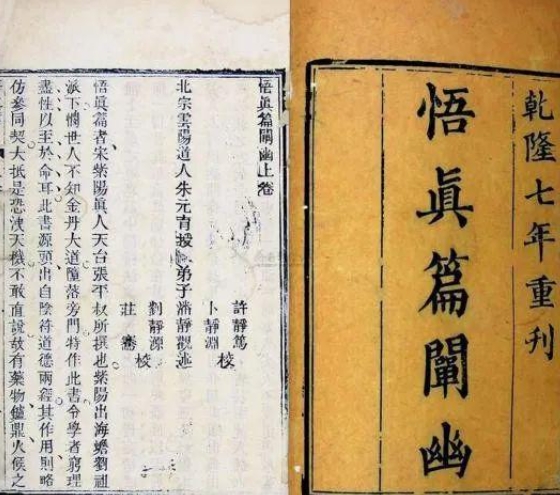 乾隆七年重刊
悟眞篇闡幽
悟眞篇闡幽上卷
北宗雲陽道人朱元育授 弟子潘靜觀述
許靜篤
卜靜淵 校
劉靜源
莊 校
悟眞篇者宋紫陽眞人天台張平叔所撰也紫陽出海蟾劉祖
派下憫世人不知金丹大道墮落旁門特作此書令學者窮理
盡性以至於命耳此書源頭出自陰符道德兩經其作用則略
仿參同契大抵是恐洩天機不敢直說故有藥物爐鼎火候之